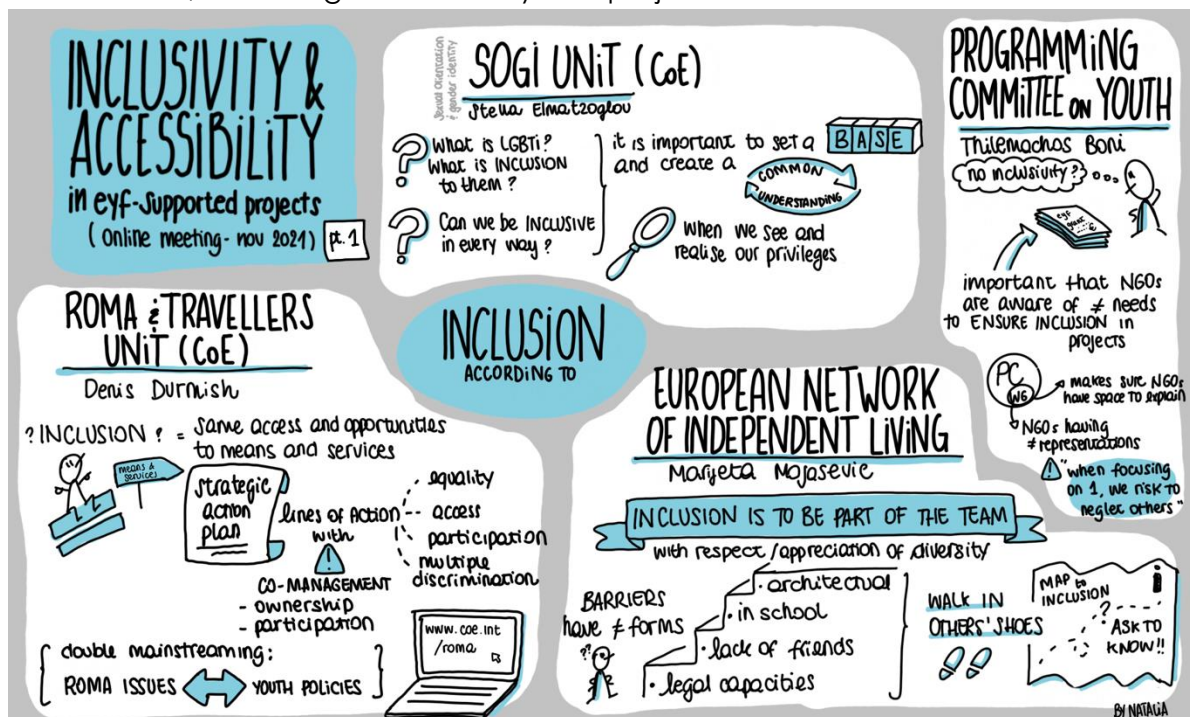 INCLUSIVITY &
ACCESSIBILITY
in eyf-supported projects
(Online meeting- nov 2021)
pt. 1
Sexual orientation
& gender identity
SOGI UNIT (CoE)
Stella Elmatzoglou
? What is LGBTi?
What is INCLUSION
to them?
? Can we be INCLUSIVE
in every way?
it is important to set a BASE
and create a COMMON
UNDERSTANDING
when we see and
realise our privileges
PROGRAMMING
COMMITTEE ON YOUTH
Thilemachos Boni
no inclusivity?
eyf
grant
important that NGOs
are aware of ≠ needs
to ENSURE INCLUSION in
projects
PC
WG
makes sure NGOs
have space to explain
NGOs having
≠ representations
"when focusing
on 1, we risk to
neglect others"
INCLUSION
ACCORDING TO
ROMA & TRAVELLERS
UNIT (CoE)
Denis Durmish
? INCLUSION ? = same access and opportunities
to means and services
means &
services
strategic
action
plan
lines of action
equality
access
participation
multiple
discrimination
with
CO-MANAGEMENT
- ownership
- participation
double mainstreaming:
ROMA ISSUES
YOUTH POLICIES
www.coe.int
/roma
EUROPEAN NETWORK
OF INDEPENDENT LIVING
Marijeta Mojasevic
INCLUSION IS TO BE PART OF THE TEAM
with respect/appreciation of diversity
BARRIERS
have ≠ forms
??
• architectual
• in school
• lack of friends
• legal capacities
WALK IN
OTHERS' SHOES
MAP to
INCLUSION
i
?
ASK TO
KNOW!!
BY NATALIA